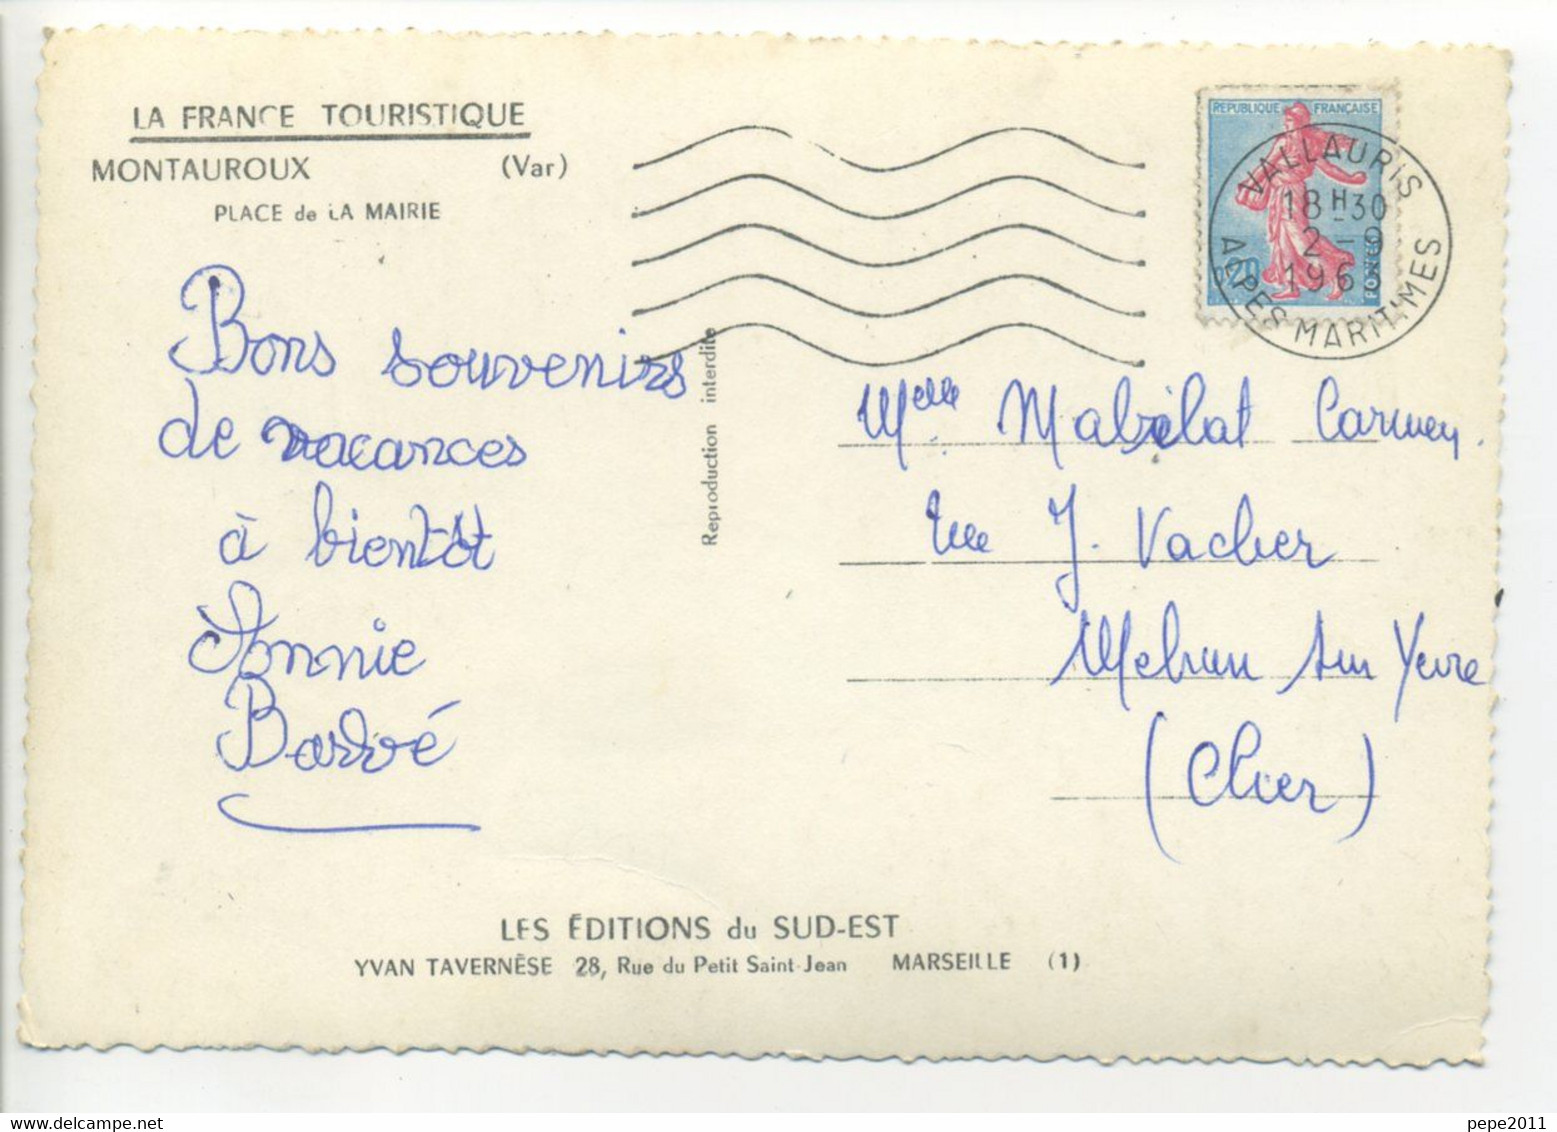 LA FRANCE TOURISTIQUE
MONTAUROUX (Var)
PLACE de LA MAIRIE
REPUBLIQUE FRANÇAISE
0,20
POSTES
VALLAURIS
18 H 30
2 - 9
1963
ALPES MARITIMES
Bons souvenirs
de vacances
à bientôt
Annie
Barré
Reproduction interdite
Melle Mabilat Carmen.
rue J. Vacher
Mehun sur Yevre
(Cher)
LES ÉDITIONS du SUD-EST
YVAN TAVERNÈSE 28, Rue du Petit Saint-Jean MARSEILLE (1)
pepe2011